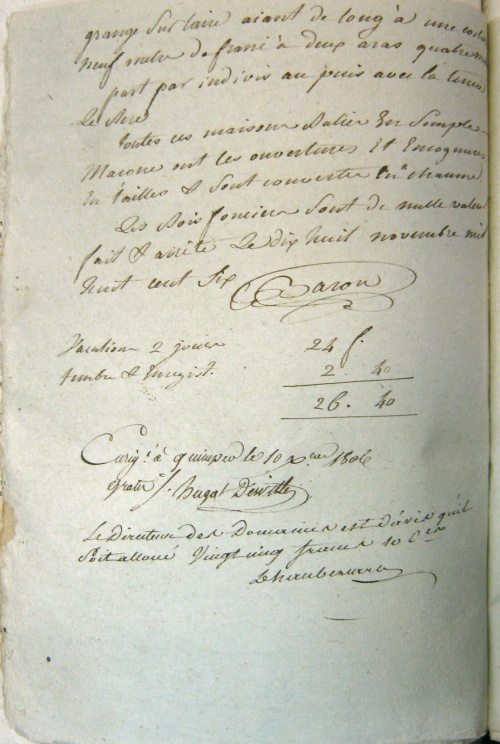 grange sur laire aiant de long à une coste
neuf metre de franc à deux aras quatre m
part par indivis au puis avec la tenue
Le Bere
toutes ces maisons Batier En Simple
Macone ont les ouvertures Et Encognures
En tailles & Sont convertes En chaume
Les Bois fonciers Sont de nulle valeur
fait & arrêté Le dix huit novembre mil
huit cent Six Baron
Vacations 2 jours 24 f.
timbre & Enregist. 2. 40
26. 40
Enrig.t à quimper le 10 Xbre 1806
gratis
Le Directeur des Domaines est d'avis qu'il
Soit alloué Vingt cinq francs 10 Ces